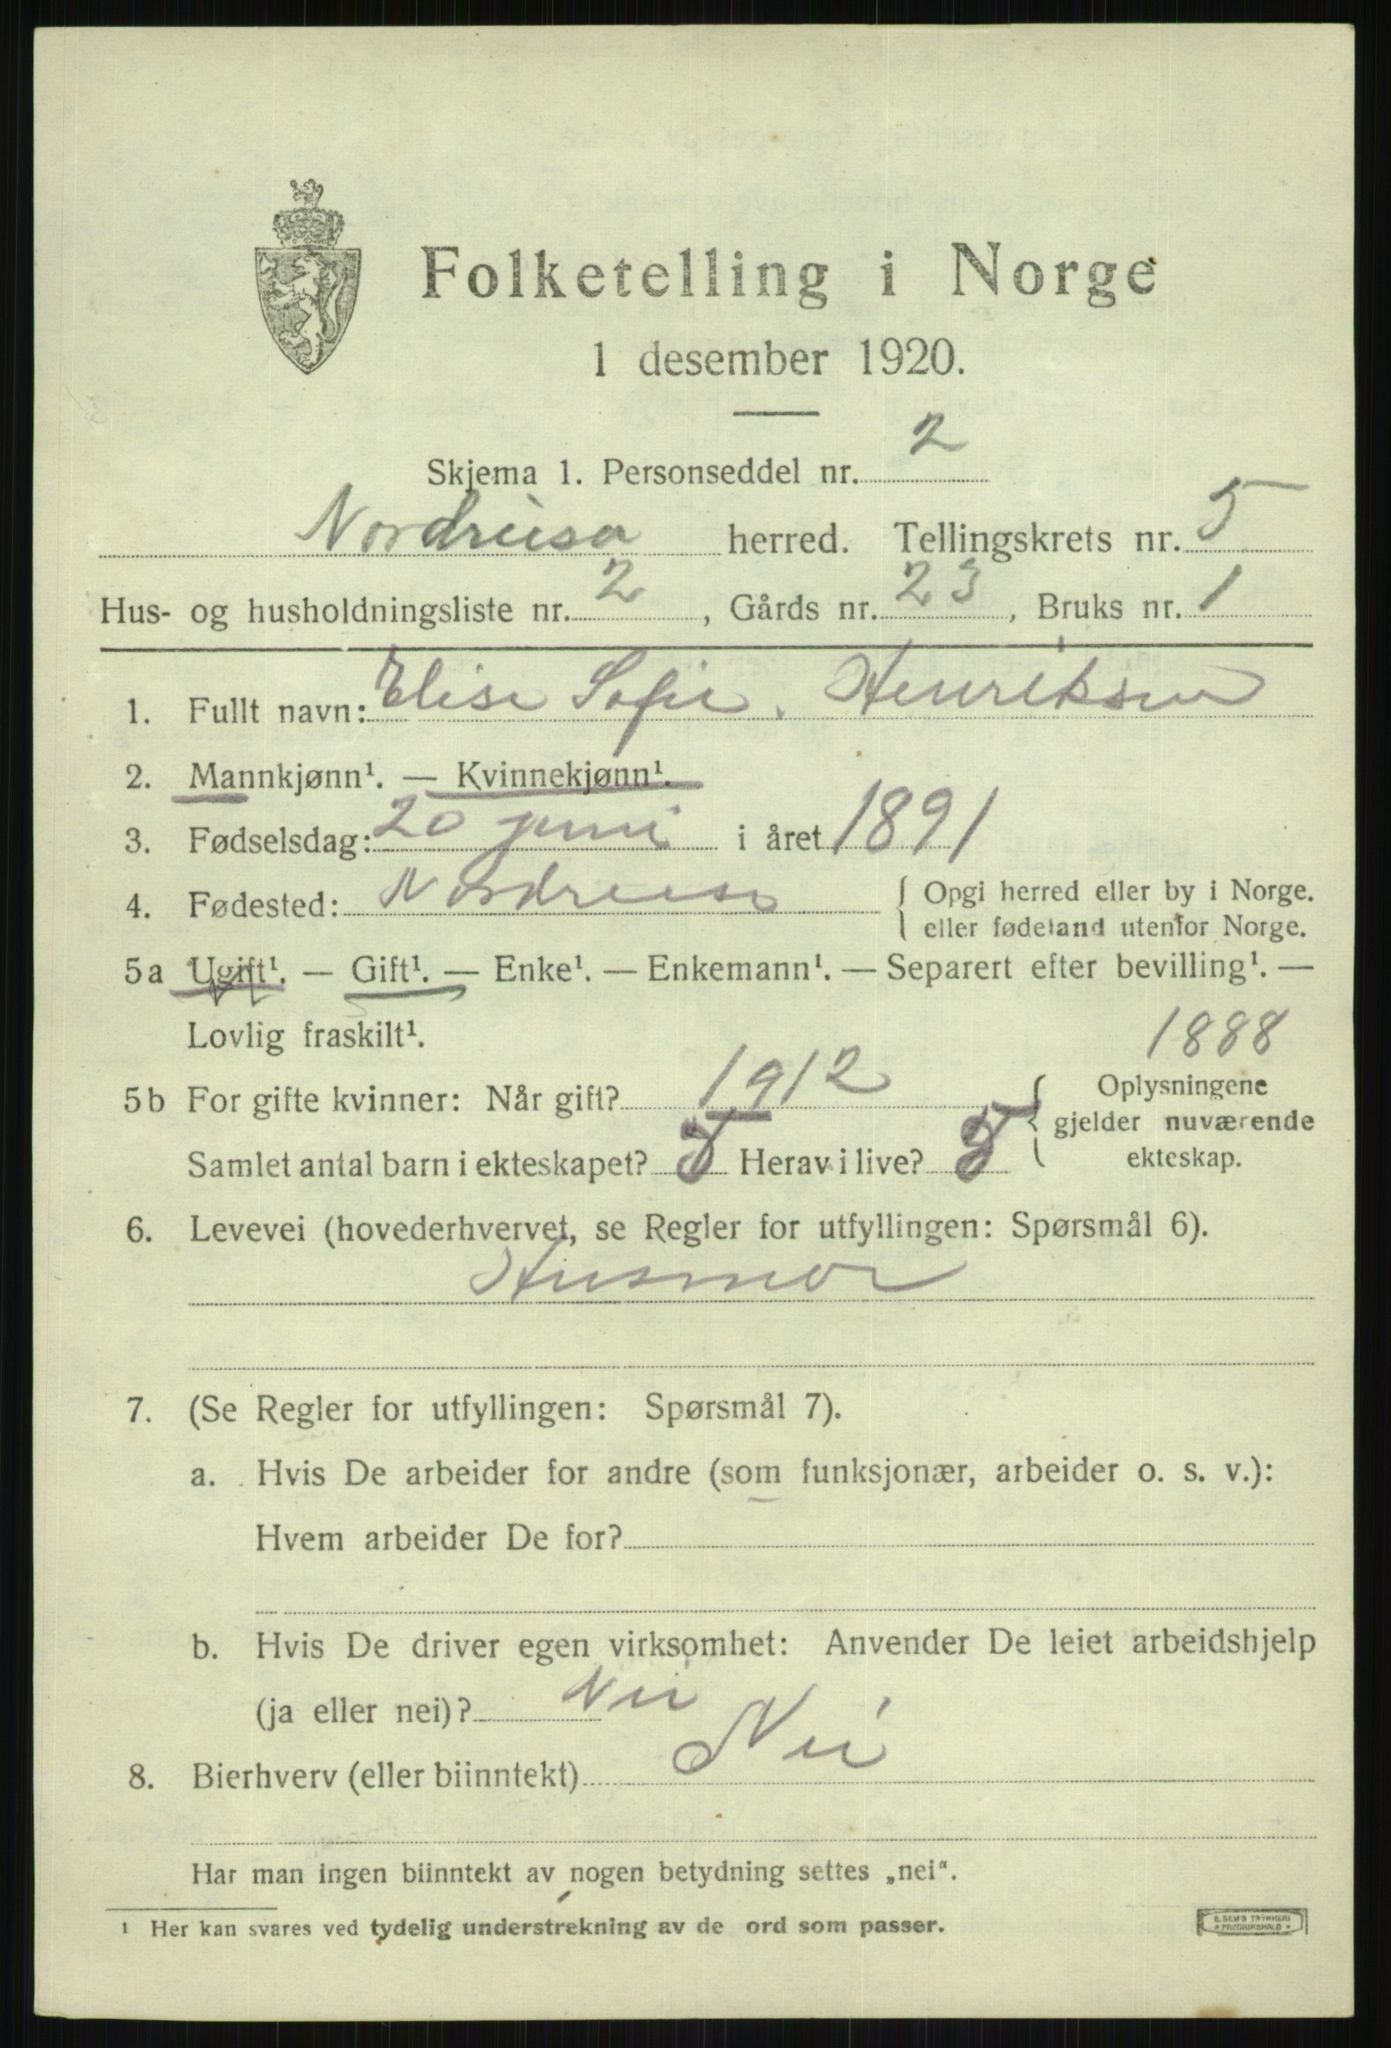 Folketelling i Norge
1 desember 1920.
Skjema 1. Personseddel nr. 2
Nordreisa herred. Tellingskrets nr. 5
Hus- og husholdningsliste nr. 2, Gårds nr. 23, Bruks nr. 1
1. Fullt navn: Elise Sofie Henriksen
2. Mannkjønn¹. — Kvinnekjønn¹.
3. Fødselsdag: 20 juni i året 1891
4. Fødested: Nordreisa { Opgi herred eller by i Norge.
eller fødeland utenfor Norge.
5a Ugift¹. — Gift¹. — Enke¹. — Enkemann¹. — Separert efter bevilling¹. —
Lovlig fraskilt¹.
1888
5b For gifte kvinner: Når gift? 1912 { Oplysningene
gjelder nuværende
ekteskap.
Samlet antal barn i ekteskapet? Herav i live?
6. Levevei (hovederhvervet, se Regler for utfyllingen: Spørsmål 6).
Husmor
7. (Se Regler for utfyllingen: Spørsmål 7).
a. Hvis De arbeider for andre (som funksjonær, arbeider o. s. v.):
Hvem arbeider De for?
b. Hvis De driver egen virksomhet: Anvender De leiet arbeidshjelp
(ja eller nei)? Nei
8. Bierhverv (eller biinntekt) Nei
Har man ingen biinntekt av nogen betydning settes „nei“.
¹ Her kan svares ved tydelig understrekning av de ord som passer.
E. SEM'S TRYKKERI
FREDRIKSHALD